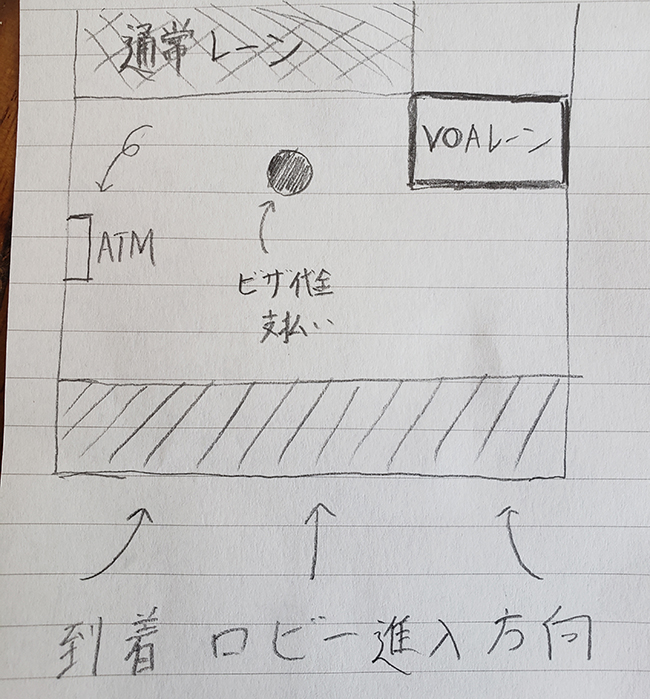 通常レーン
VOAレーン
ATM
ビザ代金
支払い
到着ロビー進入方向